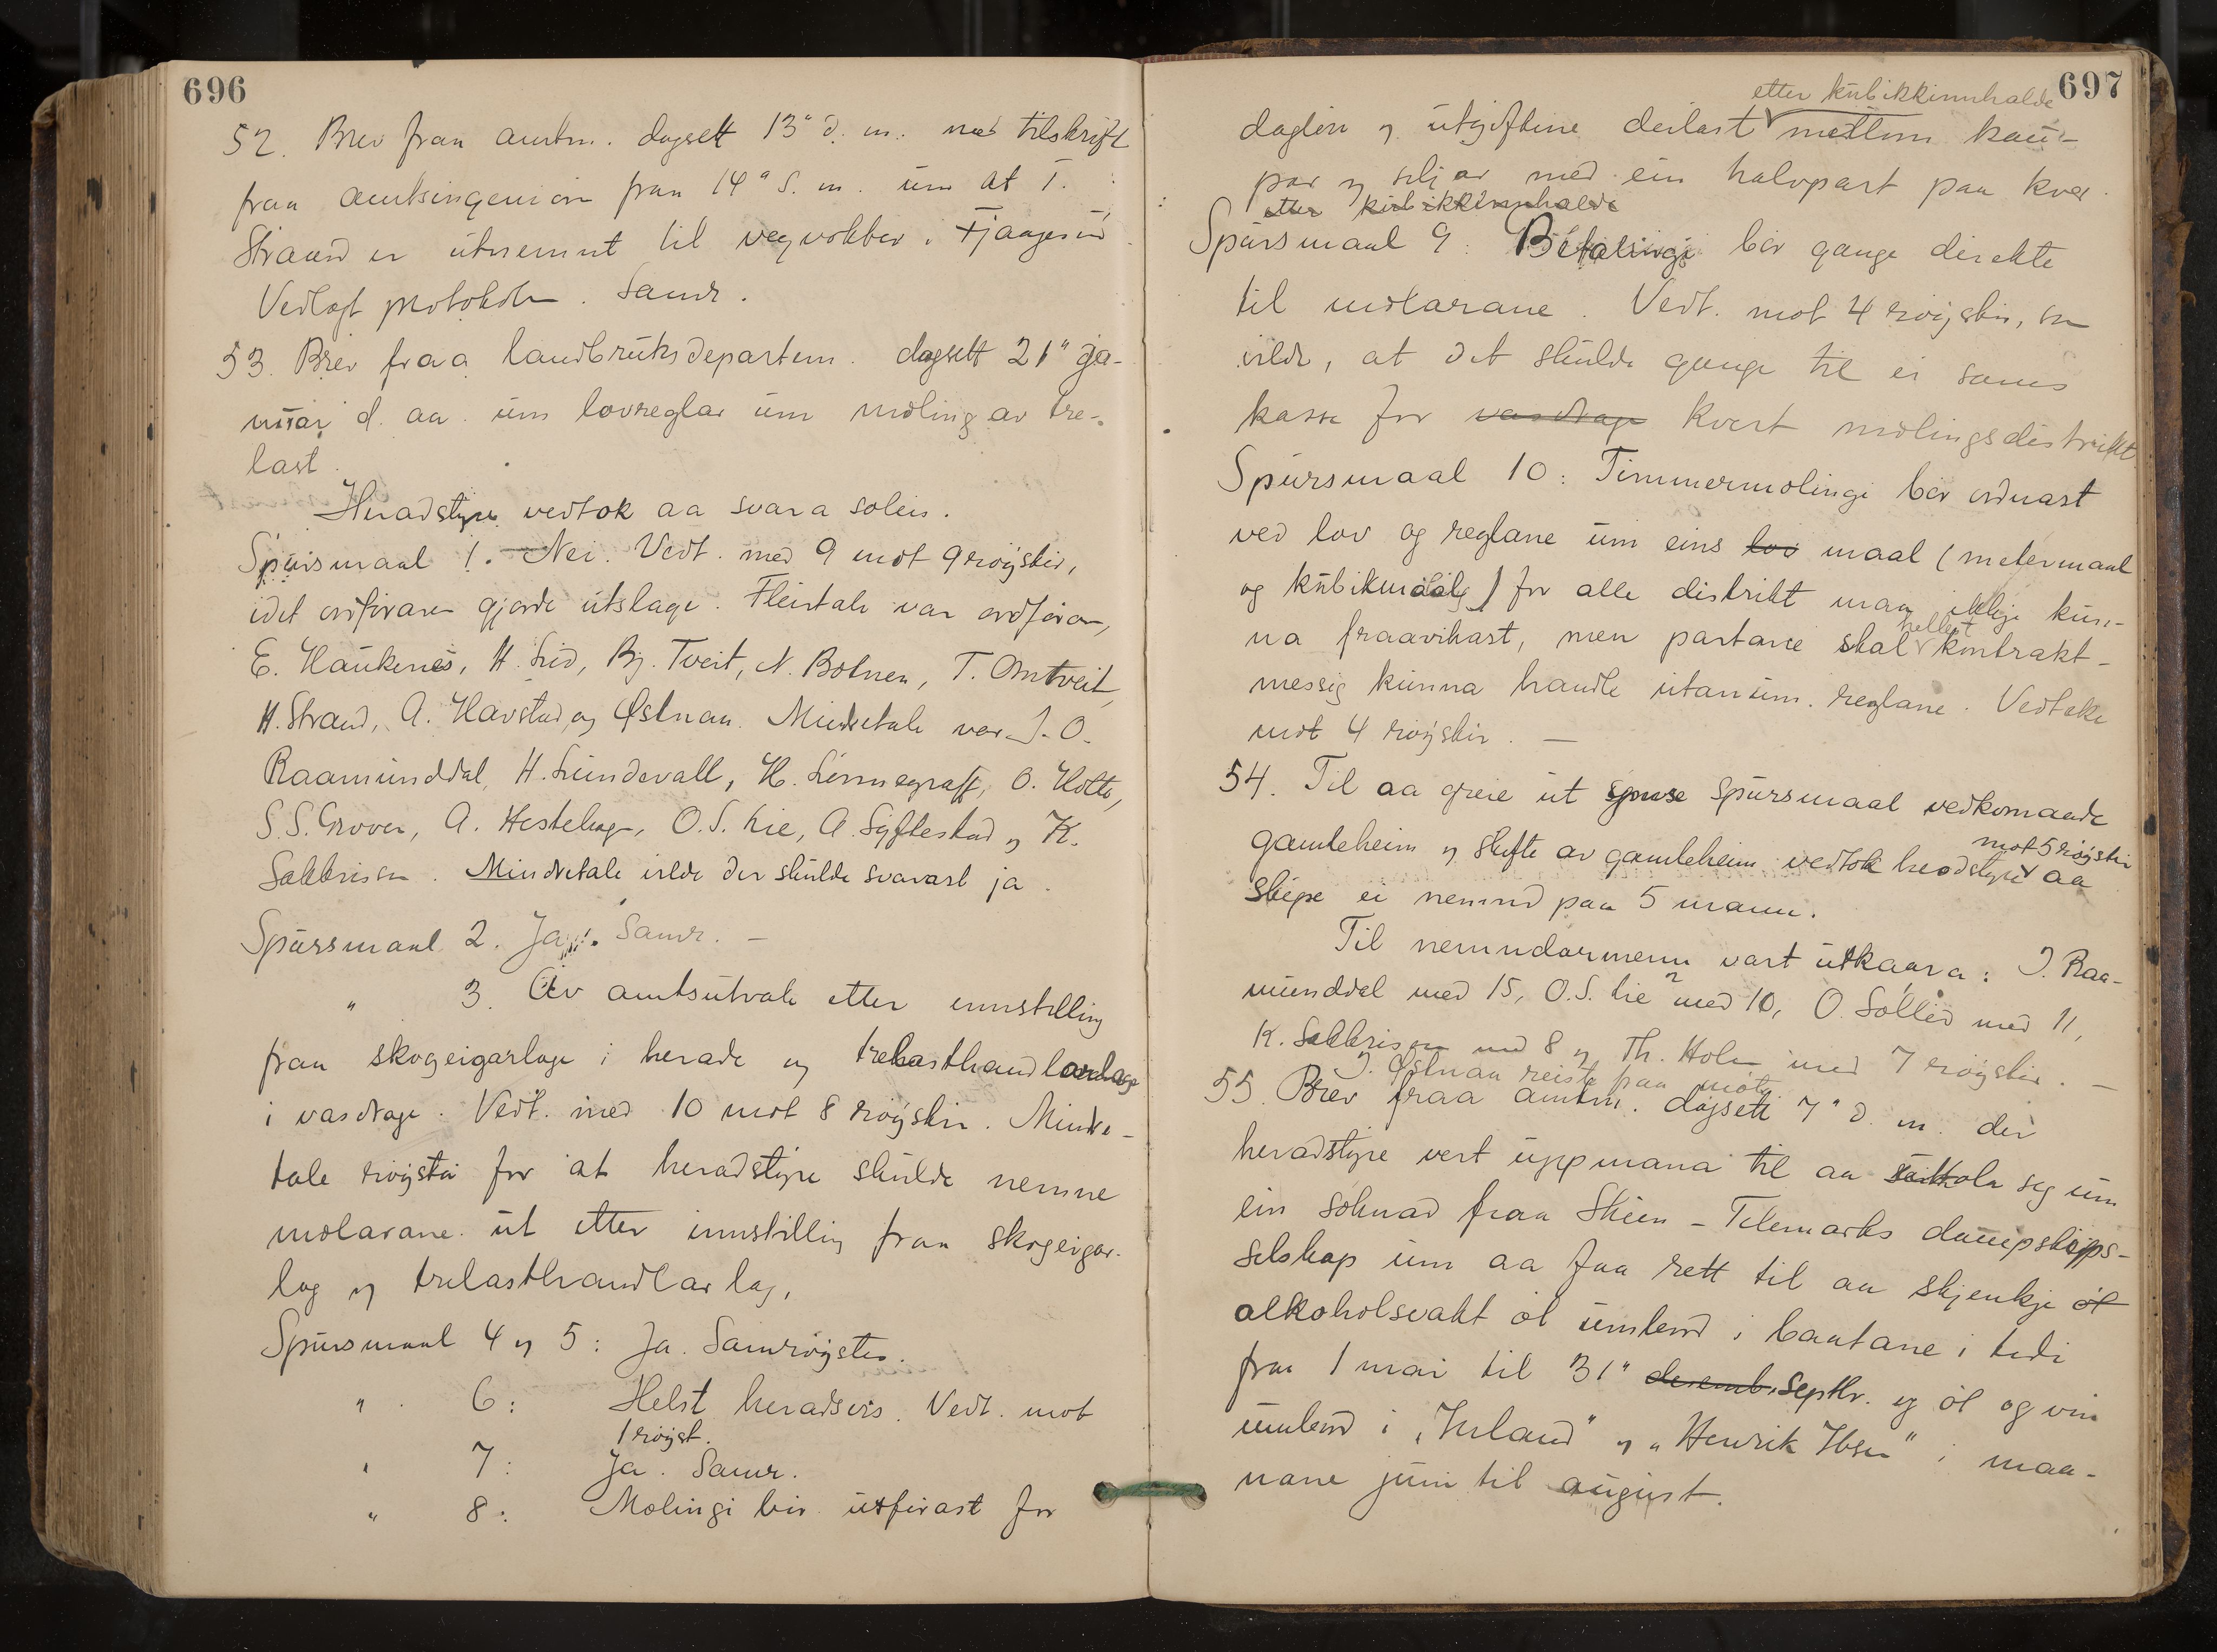 696
52. Brev fraa amtm. dagsett 13" d. m. med tilskrift
fraa amtsingeniøren fraa 14" s. m. um at T.
Strand er utnemnt til vegvokter i
Vedlagt protokollen. Samr.
53. Brev fraa landbruksdepartem. dagsett 21" ja-
nuar d. aa. um lovreglar um moling av tre-
last.
Heradstyre vedtok aa svara soleis.
Spursmaal 1. Nei. Vedt. med 9 mot 9 røyster,
idet ordføraren gjorde utslage. Fleirtale var ordføraren,
E. Haukenes, H. Lid, Bj. Tveit, N. Botnen, T. Omtveit,
H. Strand, A. Havstad og Østnaa. Mindretale var J. O.
Raamunddal, H. Lundevall, H. O. Holte,
S. S. Grover, A. Hestehag, O. S. Lie, A. Syftestad og K.
Sakkrisen. Mindretale vilde der skulde svarast ja.
Spursmaal 2. Ja. Samr. –
" 3. Av amtsutvale etter innstilling
fraa skogeigarlage i herade og trelasthandlarlage
i vasdrage. Vedt. med 10 mot 8 røyster. Mindre-
tale røysta for at heradstyre skulde nemne
molarane ut etter innstilling fraa skogeigar-
lag og trelasthandlarlag.
Spursmaal 4 og 5: Ja. Samrøystes.
" 6: Helst heradsvis. Vedt. mot
1 røyst.
" 7: Ja. Samr.
" 8: Molingi bør utførast for
697
etter kubikkinnhalde
dagløn og utgiftene deilast mellom kau-
par og seljar med ein halvpart paa kvar.
etter kubikkinnhalde
Spursmaal 9: Betalingi bør gange direkte
til molarane. Vedt. mot 4 røyster, som
vilde, at det skulde gange til ei sams
kasse for vasdrage kvert molingsdistrikt
Spursmaal 10: Timmermolingi bør ordnast
ved lov og reglane um eins lov maal (metermaal
og kubikmaal) for alle distrikt maa ikkje kun-
hellest
na fraavikast, men partane skal kontrakt-
messig kunna handle utanum reglane. Vedteke
mot 4 røyster. –
54. Til aa greie ut spurs spursmaal vedkomande
mot 5 røyster
gamleheim og skifte av gamleheim vedtok heradstyre aa
skipe ei nemnd paa 5 mann.
Til nemndarmenn vart utkaara: J. Raa-
munddal med 15, O. S. Lie med 10, O. Sollid med 11,
K. Sakkrisen med 8 og Th. Holm med 7 røyster. –
J. Østnaa reiste fraa møte
55. Brev fraa amtm. dagsett 7" d. m. der
heradstyre vert uppmana til aa uttala seg um
ein søknad fraa Skien–Telemarks dampskips-
selskap um aa faa rett til aa skjenkje øl
alkoholsvakt øl umbord i baatane i tidi
fraa 1 mai til 31" desemb. septbr. og øl og vin
umbord i „Inland" og „Henrik Ibsen" i maa-
nane juni til august.